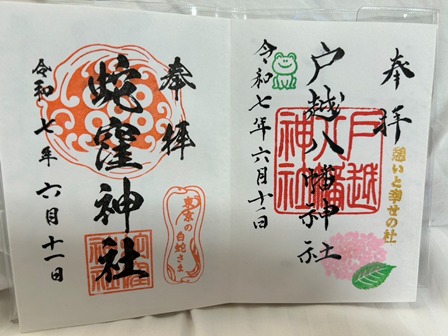 奉拝
戸越八幡神社
令和七年六月十一日
戸越
八幡
神社
憩いと幸せの社
奉拝
蛇窪神社
令和七年六月十一日
東京の
白蛇さま
蛇窪
神社